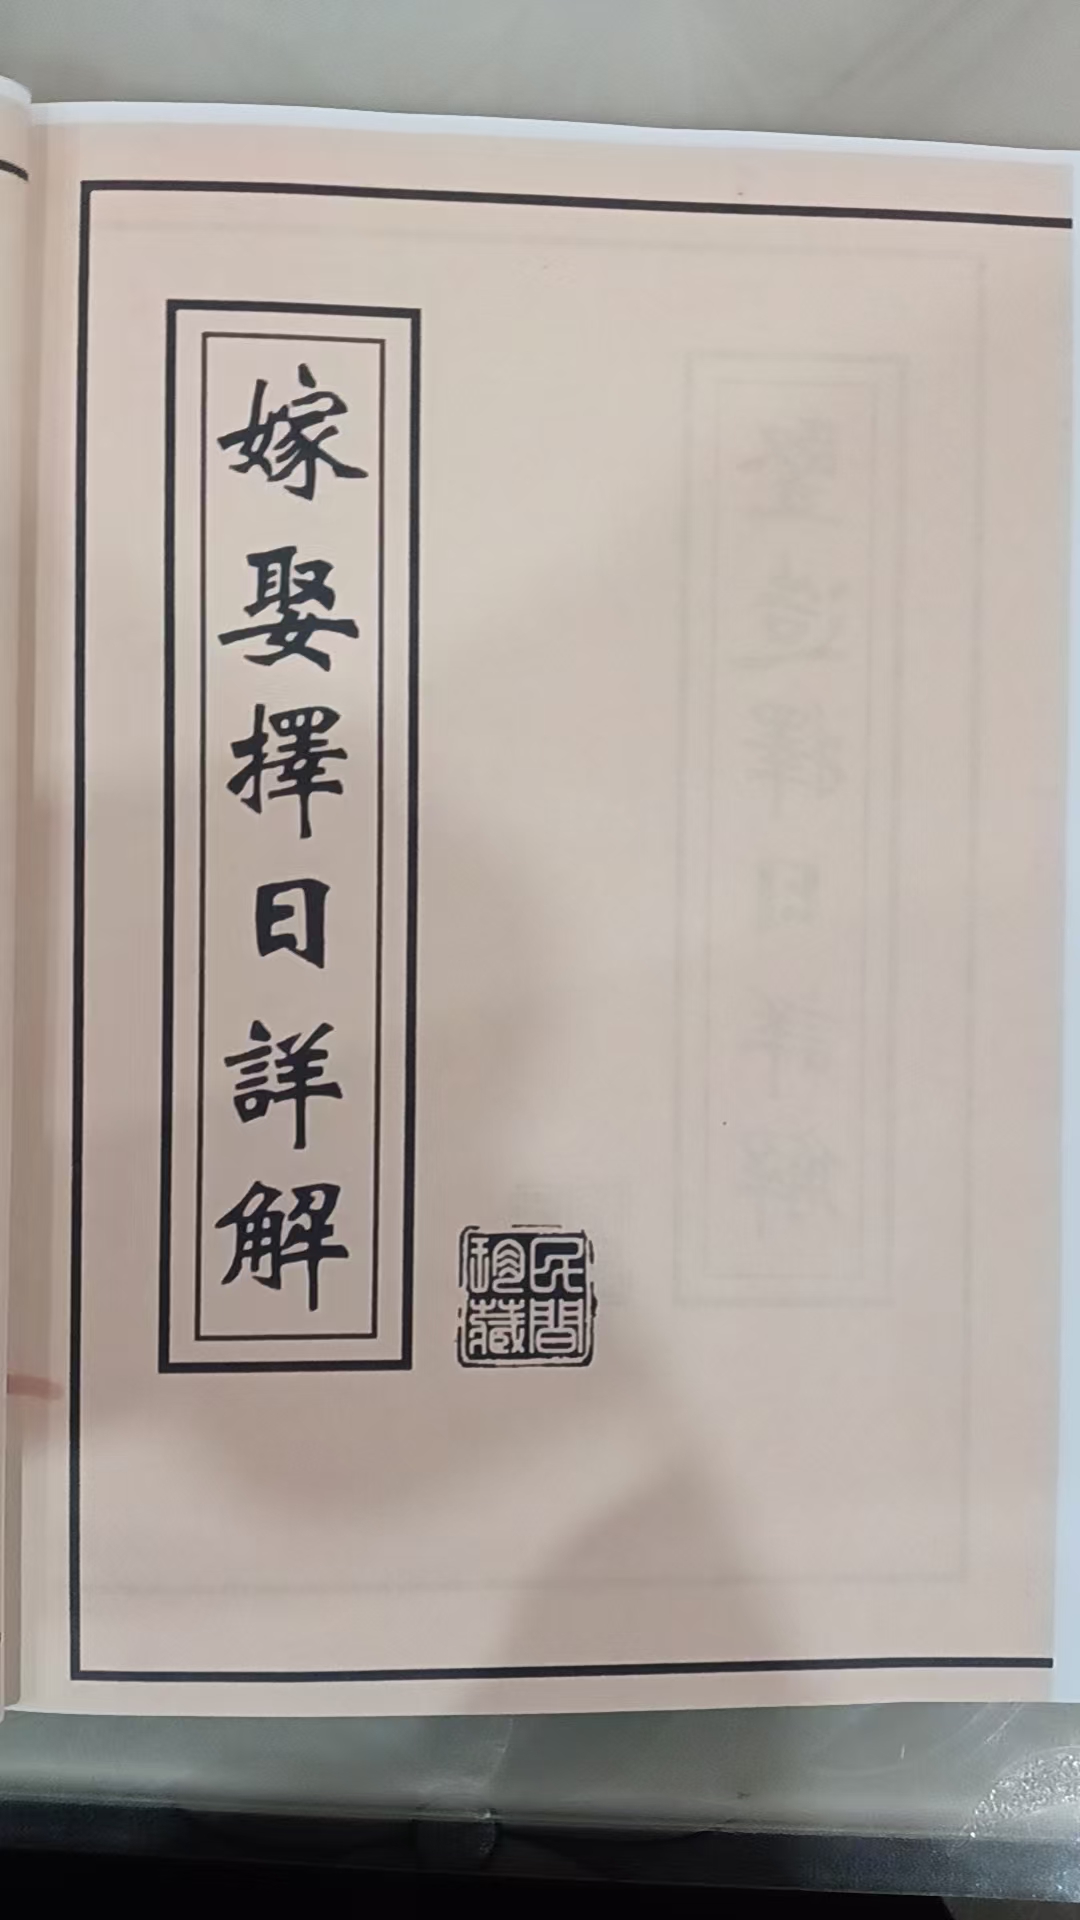 嫁娶擇日詳解
民間
珍藏